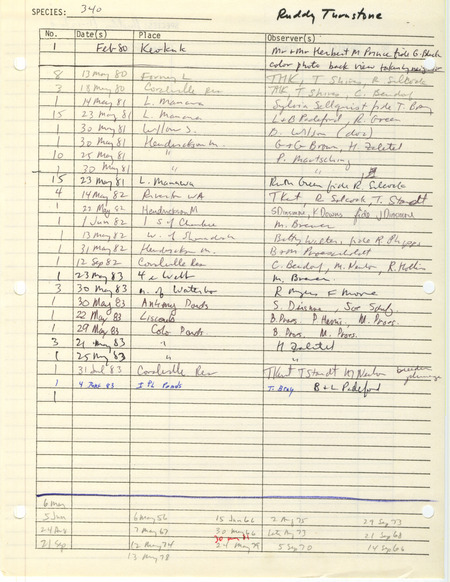 SPECIES: 340 Ruddy Turnstone
No. Date(s) Place Observer(s)
1 Feb 80 Keokuk Mr + Mr Herbert M Prince fide G. Black
color photo back view taken by neighbor
8 13 May 80 Forney L THK, T Shires, R Silcock
3 18 May 80 Coralville Res THK T Shires, C. Bendorf
1 14 May 81 L. Manawa Sylvia Sellquist fide T. Bray
15 23 May 81 L. Manawa L+B Padelford, R Green
1 30 May 81 Willow S. B. Wilson (doc)
1 30 May 81 Hendrickson M. G+G Brown, H Zaletel
10 25 May 81 " P. Martsching
30 May 81 "
15 23 May 81 L. Manawa Ruth Green fide R Silcock
4 14 May 82 Riverton WA TKent R Silcock T. Staudt
1 22 May 82 Hendrickson M S Dinsmore, K Downs fide J Dinsmore
1 1 Jun 82 S of M. Brewer
1 13 May 82 W. of Betty Walters, fide R Phipps
1 31 May 82 Hendrickson M. B+M Proescholdt
1 12 Sep 82 Coralville Res C. Bendorf, M. Newlon, R Hollis
1 23 May 83 4 e Webb M Brewer
3 30 May 83 n. of Waterloo R Myers F Moore
1 30 May 83 Ankeny Ponds S. Dinsmore,
1 22 May 83 Liscomb B. Proes. P. Harris, M. Proes.
1 29 May 83 Colo Ponds B. Proes. M. Proes.
3 21 May 83 " H Zaletel
1 25 May 83 " "
1 31 Jul 83 Coralville Res TKent T Staudt M Newlon breeding plumage
1 4 83 IPL Ponds T. Bray B + L Padelford
1
6 May
5 Jun 6 May 56 15 Jun 66 2 Aug 75 29 Sep 73
24 Aug 7 May 67 30 May 66 late Aug 77 21 Sep 68
21 Sep 12 May 74 30 May 81 24 May 75 5 Sep 70 14 Sep 66
13 May 78